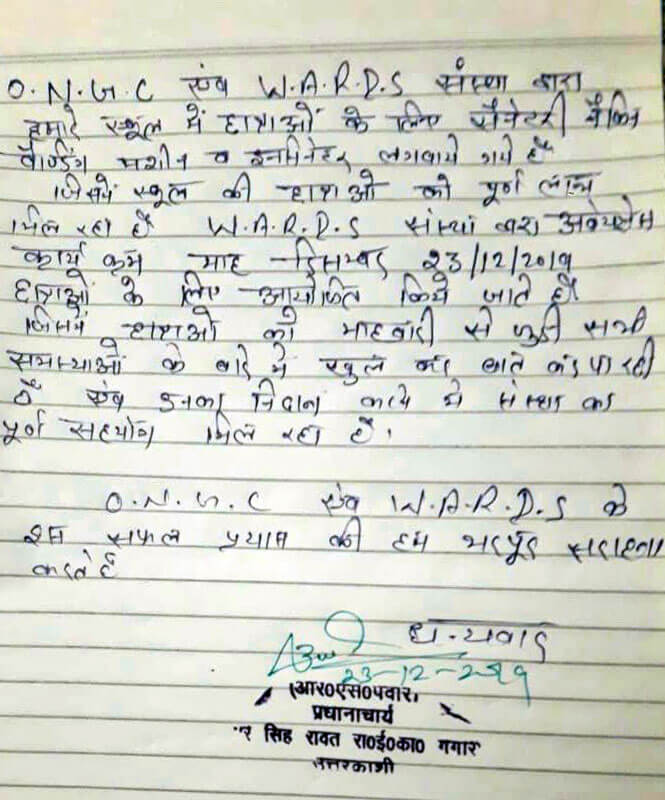 O.N.G.C एंव W.A.R.D.S संस्था द्वारा
हमारे स्कूल में छात्राओं के लिए सैनेटरी नैकिन
वैण्डिंग मशीन व इनसिनेटर लगवाये गये है
जिसमें स्कूल की छात्राओ को पूर्ण लाभ
मिल रहा है W.A.R.D.S संस्था द्वारा अवेयरनेस
कार्य क्रम माह दिसम्बर 23/12/2019
छात्राओं के लिए आयोजित किये जाते है
जिसमें छात्राओ को माहवारी से जुड़ी सभी
समस्याओं के बारे में खुल कर बाते कर पा रही
है एंव इनका निदान करने में संस्था का
पूर्ण सहयोग मिल रहा है।
O.N.G.C एंव W.A.R.D.S के
इस सफल प्रयास की हम भरपूर सराहना
करते है
धन्यवाद
23-12-2019
(आर०एस०पवार)
प्रधानाचार्य
सिंह रावत रा०ई०का० गगार
उत्तरकाशी